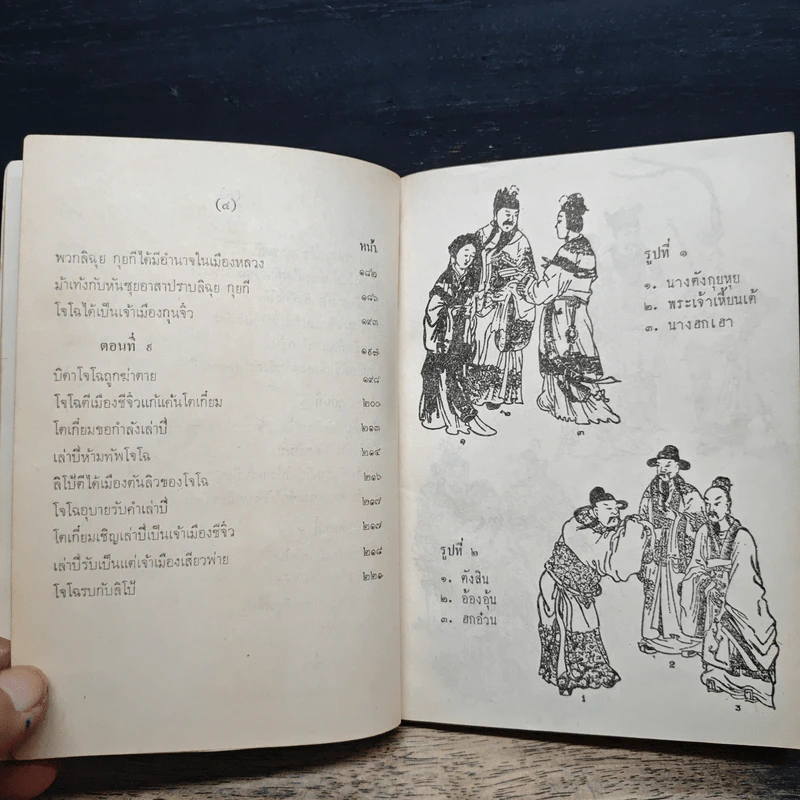 (๔)
หน้า
พวกลิฉุย กุยกีได้มีอำนาจในเมืองหลวง ๑๘๒
ม้าเท้งกับหันซุยอาสาปราบลิฉุย กุยกี ๑๘๖
โจโฉได้เป็นเจ้าเมืองกุนจิ๋ว ๑๙๓
ตอนที่ ๙ ๑๙๗
บิดาโจโฉถูกฆ่าตาย ๑๙๘
โจโฉตีเมืองชีจิ๋วแก้แค้นโตเกี๋ยม ๒๐๐
โตเกี๋ยมขอกำลังเล่าปี่ ๒๑๓
เล่าปี่ห้ามทัพโจโฉ ๒๑๔
ลิโป้ตีได้เมืองตันลิวของโจโฉ ๒๑๖
โจโฉอุบายรับคำเล่าปี่ ๒๑๗
โตเกี๋ยมเชิญเล่าปี่เป็นเจ้าเมืองชีจิ๋ว ๒๑๗
เล่าปี่รับเป็นแต่เจ้าเมืองเสียวพ่าย ๒๑๘
โจโฉรบกับลิโป้ ๒๒๑
รูปที่ ๑
๑. นางตังกุยหุย
๒. พระเจ้าเหี้ยนเต้
๓. นางฮกเฮา
๑ ๒ ๓
รูปที่ ๒
๑. ตังสิน
๒. อ้องอุ้น
๓. ฮกอ๋วน
1 2 3